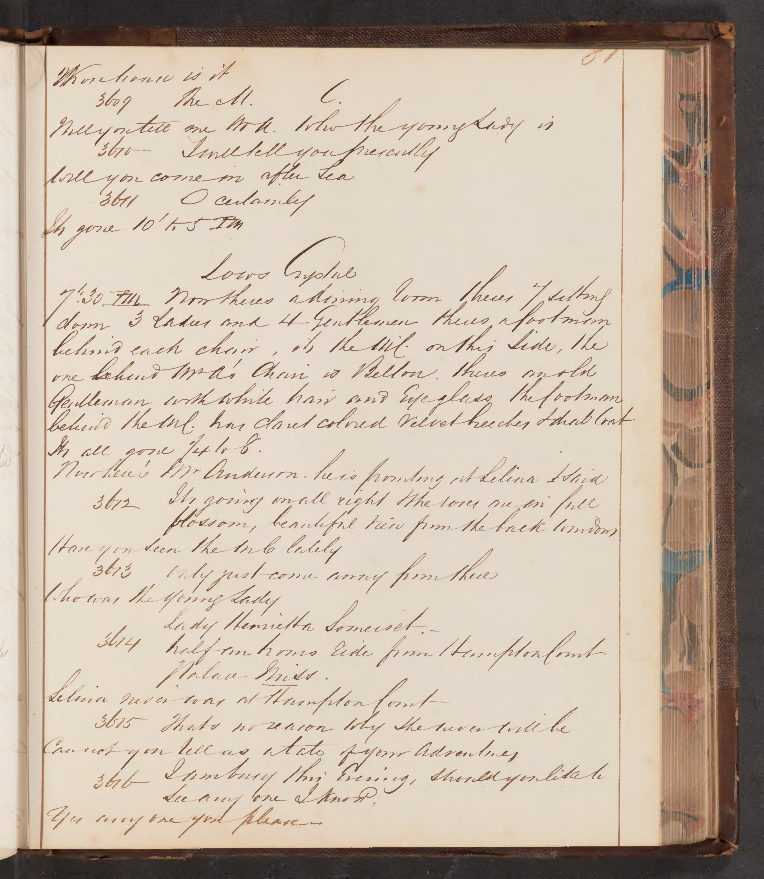 81
Whose house is it
3609 The M. C.
Will you tell me Mr A. who the young Lady is
3610 I will tell you presently
Will you come in after tea
3611 O certainly
Its gone 10' to 5 PM
Lows Crystal
7.30 PM Now theres a dining room theres 7 sitting
down 3 Ladies and 4 Gentlemen theres a footman
behind each chair, its the M.C. on this side, the
one behind Mr A's Chair is Belton. theres an old
Gentleman with white hair and Eyeglass the footman
behind the M.C. has claret colored velvet breeches & drab Coat
Its all gone 1/4 to 8.
Now here's Mr Anderson. he is pointing at Selina & said
3612 Its going on all right & the roses are in full
blossom, beautiful view from the back windows
Have you seen the M C lately
3613 only just come away from there
Who was the young Lady
Lady Henrietta Somerset. –
3614 half an hours ride from Hampton Court
Palace Miss.
Selina never was at Hampton Court
3615 thats no reason why she never will be
Can not you tell us a tale of your Adventures
3616 I am busy this Evening, should you like to
see any one I know.
Yes any one you please –